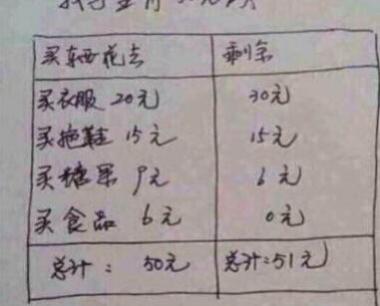 买东西花去 剩余
买衣服 20元 30元
买拖鞋 15元 15元
买糖果 9元 6元
买食品 6元 0元
总计： 50元 总计：51元